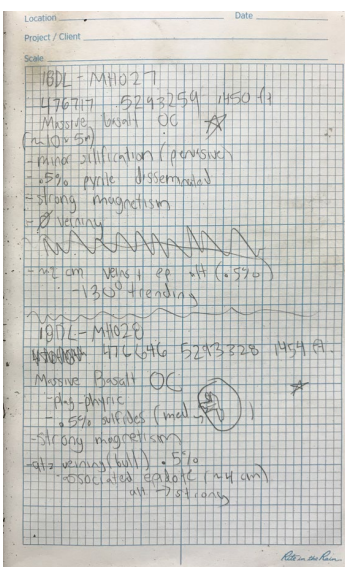 Location Date
Project / Client
Scale
18DL-MH027
476717 5293259 1450 ft
Massive Basalt OC
(~10 x 5m)
- minor silification (pervasive)
- .5% pyrite disseminated
- strong magnetism
- Ø veining
- ~2 cm veins, ep alt (.5%)
- 130° trending
18DL-MH028
476646 5293328 1454 ft.
Massive Basalt OC
- plag-phyric
- .5% sulfides (med → )
- strong magnetism
- qtz veining (bull) .5%
- associated epidote (~4 cm)
alt → strong
Rite in the Rain